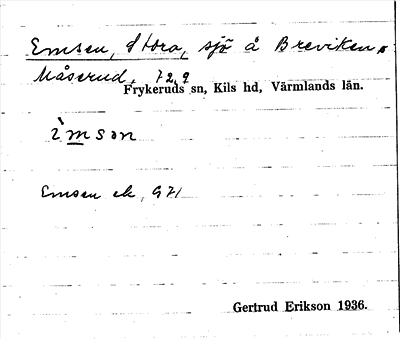 Emsen, Stora, sjö å Breviken,
Måserud, 72,9
Frykeruds sn, Kils hd, Värmlands län.
ìmsən
Emsen ek, G71
Gertrud Erikson 1936.